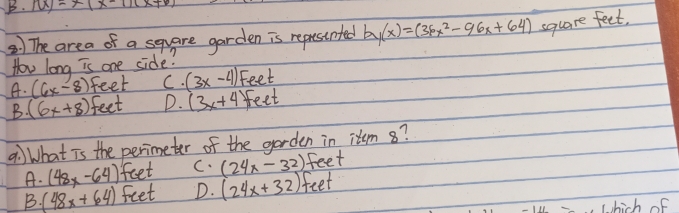 8.) The area of a square garden is represented by (x) = (36x² - 96x + 64) square feet.
How long is one side?
A. (6x-8) feet C. (3x-4) feet
B. (6x+8) feet D. (3x+4) feet
9.) What is the perimeter of the garden in item 8?
A. (48x-64) feet C. (24x-32) feet
B. (48x+64) feet D. (24x+32) feet
Which of